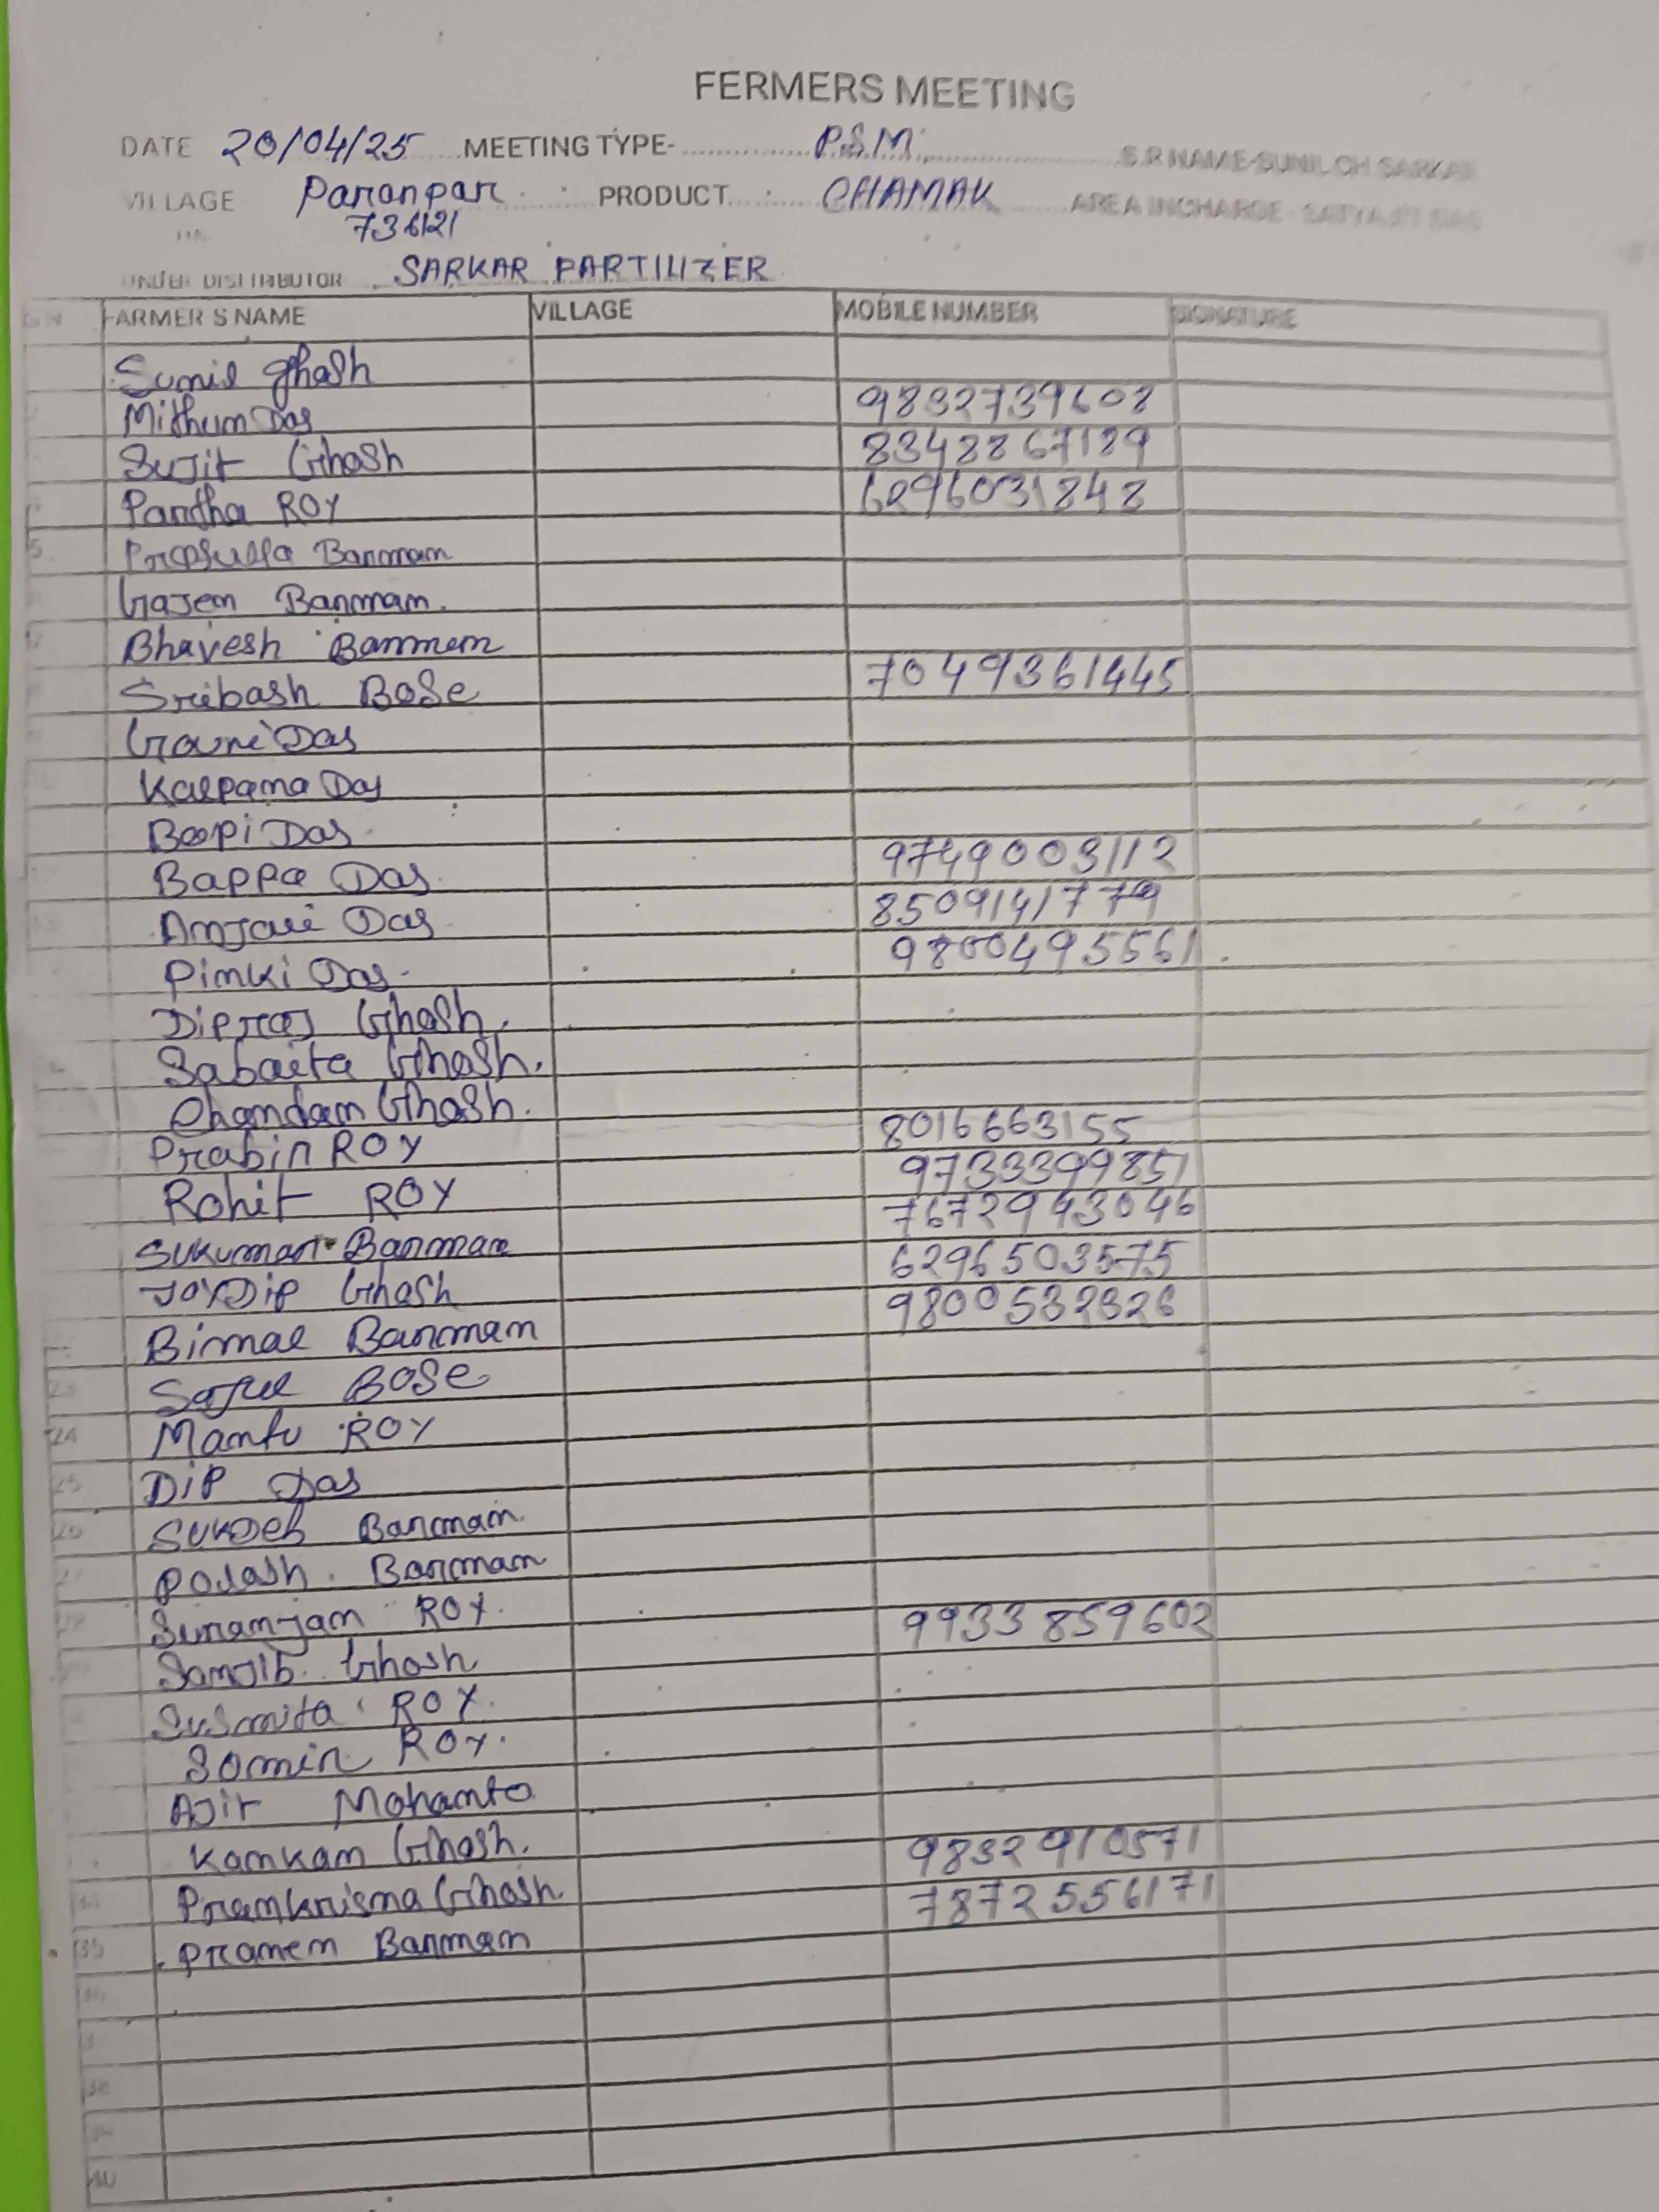 FERMERS MEETING
DATE 20/04/25 MEETING TYPE- P.S.M. S.R NAME-SUNIL CH SARKAR
VILLAGE Paranpar PRODUCT CHAMAK AREA INCHARGE- SATYAJIT DAS
736121
UNDER DISTRIBUTOR SARKAR PARTILIZER
FARMER S NAME VILLAGE MOBILE NUMBER SIGNATURE
Sunil Ghosh
Mithun Das 9832739608
Sujit Ghosh 8348867189
Partha ROY 6296031848
5. Prafulla Barman
Gajen Barman.
Bhavesh Barman
Sribash BoSe 7049361445
Gouri Das
Kalpana Das
Bapi Das
Bappa Das 9749003112
Anjali Das 8509141779
Pinki Das 9800495561
Dipraj Ghosh.
Sabaita Ghosh.
Chandan Ghosh.
Prabin ROY 8016663155
Rohit ROY 9733399851
Sukumar Barman 7672943046
JoyDip Ghosh 6296503575
Bimal Barman 9800532326
23 BOSe
24 Mantu ROY
25 DiP Das
26 SukDeb Barman
27 Polash. Barman
28 Suranjan ROY. 9933859602
Sanjib Ghosh
Susmita ROY.
Somir ROY.
AJit Mohanto
Kankan Ghosh. 9832910571
34 Prankrisna Ghosh 7872556171
35 Pranen Barman
38
40